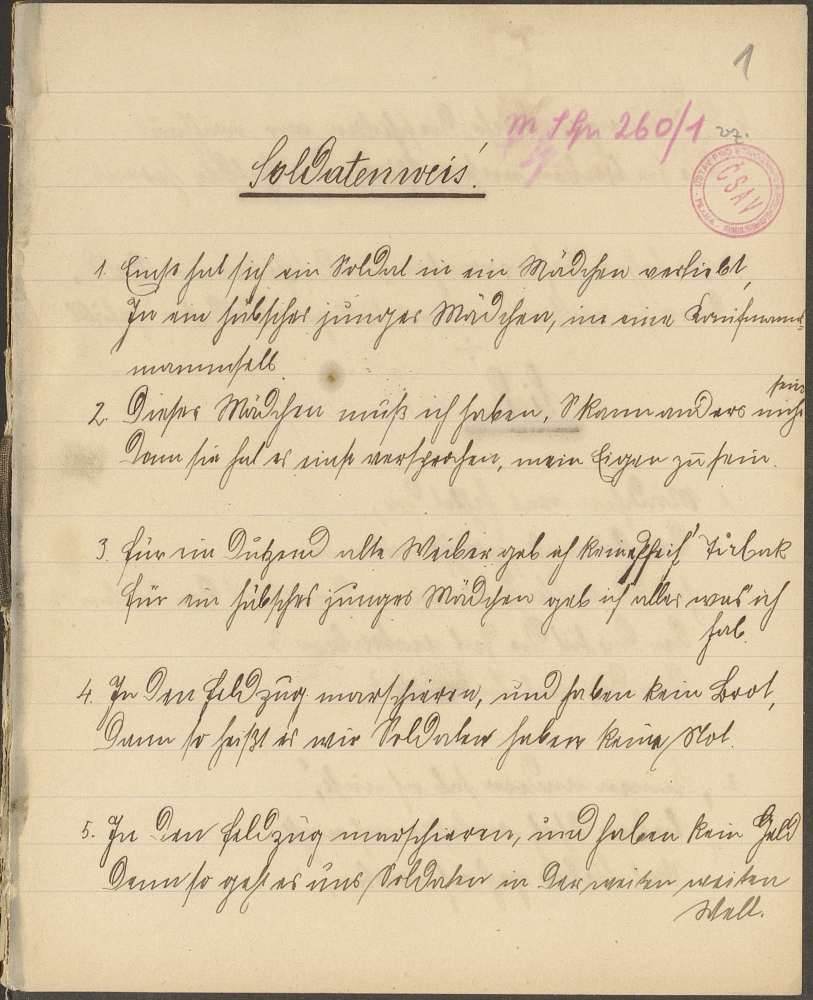 1
260/1
ČSAV
Soldatenweis'.
1. Einst hat sich ein Soldat in ein Mädchen verliebt,
In ein hübsches junges Mädchen, in eine Kaufmanns-
mammsell.
2. Dieses Mädchen muß ich haben, S'kann anders nicht
sein
Denn sie hat es einst versprochen, mein Eigen zu sein.
3. Für ein Dutzend alte Weiber geb ich kein Pfeif' Tubak
Für ein hübsches junges Mädchen geb ich alles was ich
hab.
4. In den Feldzug marschieren, und haben kein Brot,
Dann so heißt es wir Soldaten haben keine Not.
5. In den Feldzug marschieren, und haben kein Geld
Denn so geht es uns Soldaten in der weiten weiten
Welt.